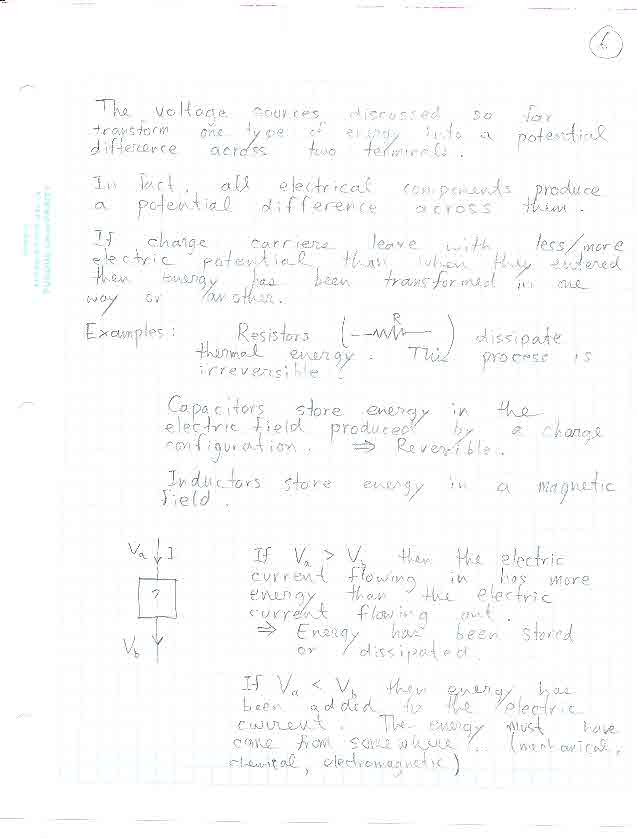 6
The voltage sources discussed so far
transform one type of energy into a potential
difference across two terminals.
In fact, all electrical components produce
a potential difference across them.
If charge carriers leave with less/more
electric potential than when they entered
then energy has been transformed in one
way or another.
Examples: Resistors ( R ) dissipate
thermal energy. This process is
irreversible.
Capacitors store energy in the
electric field produced by a charge
configuration. ⇒ Reversible.
Inductors store energy in a magnetic
field.
Va I
?
Vb
If Va > Vb then the electric
current flowing in has more
energy than the electric
current flowing out.
⇒ Energy has been stored
or dissipated.
If Va < Vb then energy has
been added to the electric
current. The energy must have
come from somewhere... (mechanical,
chemical, electromagnetic)
PURDUE UNIVERSITY